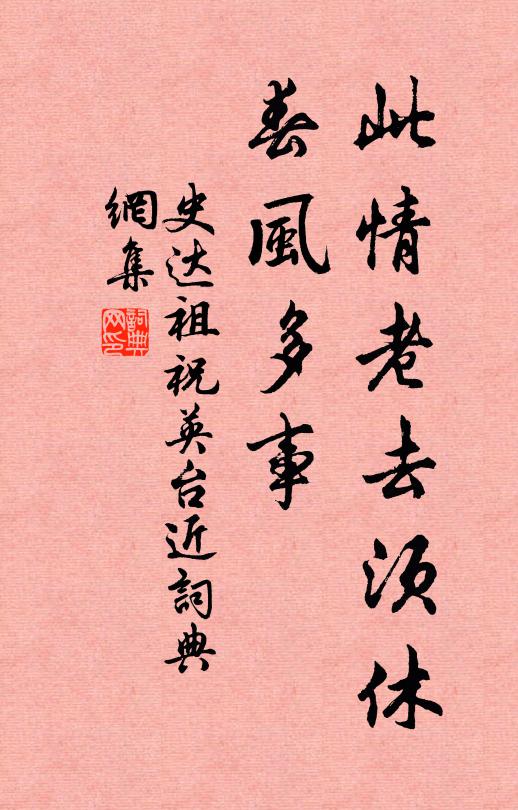 此情老去须休
春風多事
史达祖祝英台近詞典
網集
詞典网印